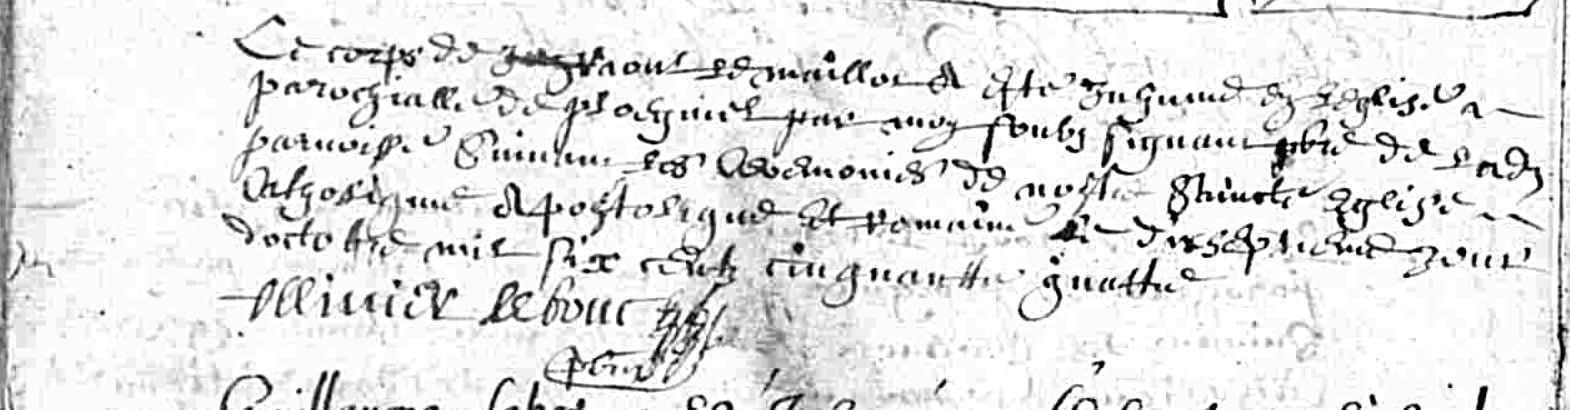 Le corps de Raoul Lemaillot A Este Inhumé en leglise
parochialle de ploermel par moy soubz signant pbre de ladi
parroisse Suivant les Ceremonies de nostre Saincte Eglise
Catholique Apostolique Et Romaine Le dixseptieme Jour
doctobre mil six centz cinquante quattre
Ollivier Lebouc
pbre
Guillaume